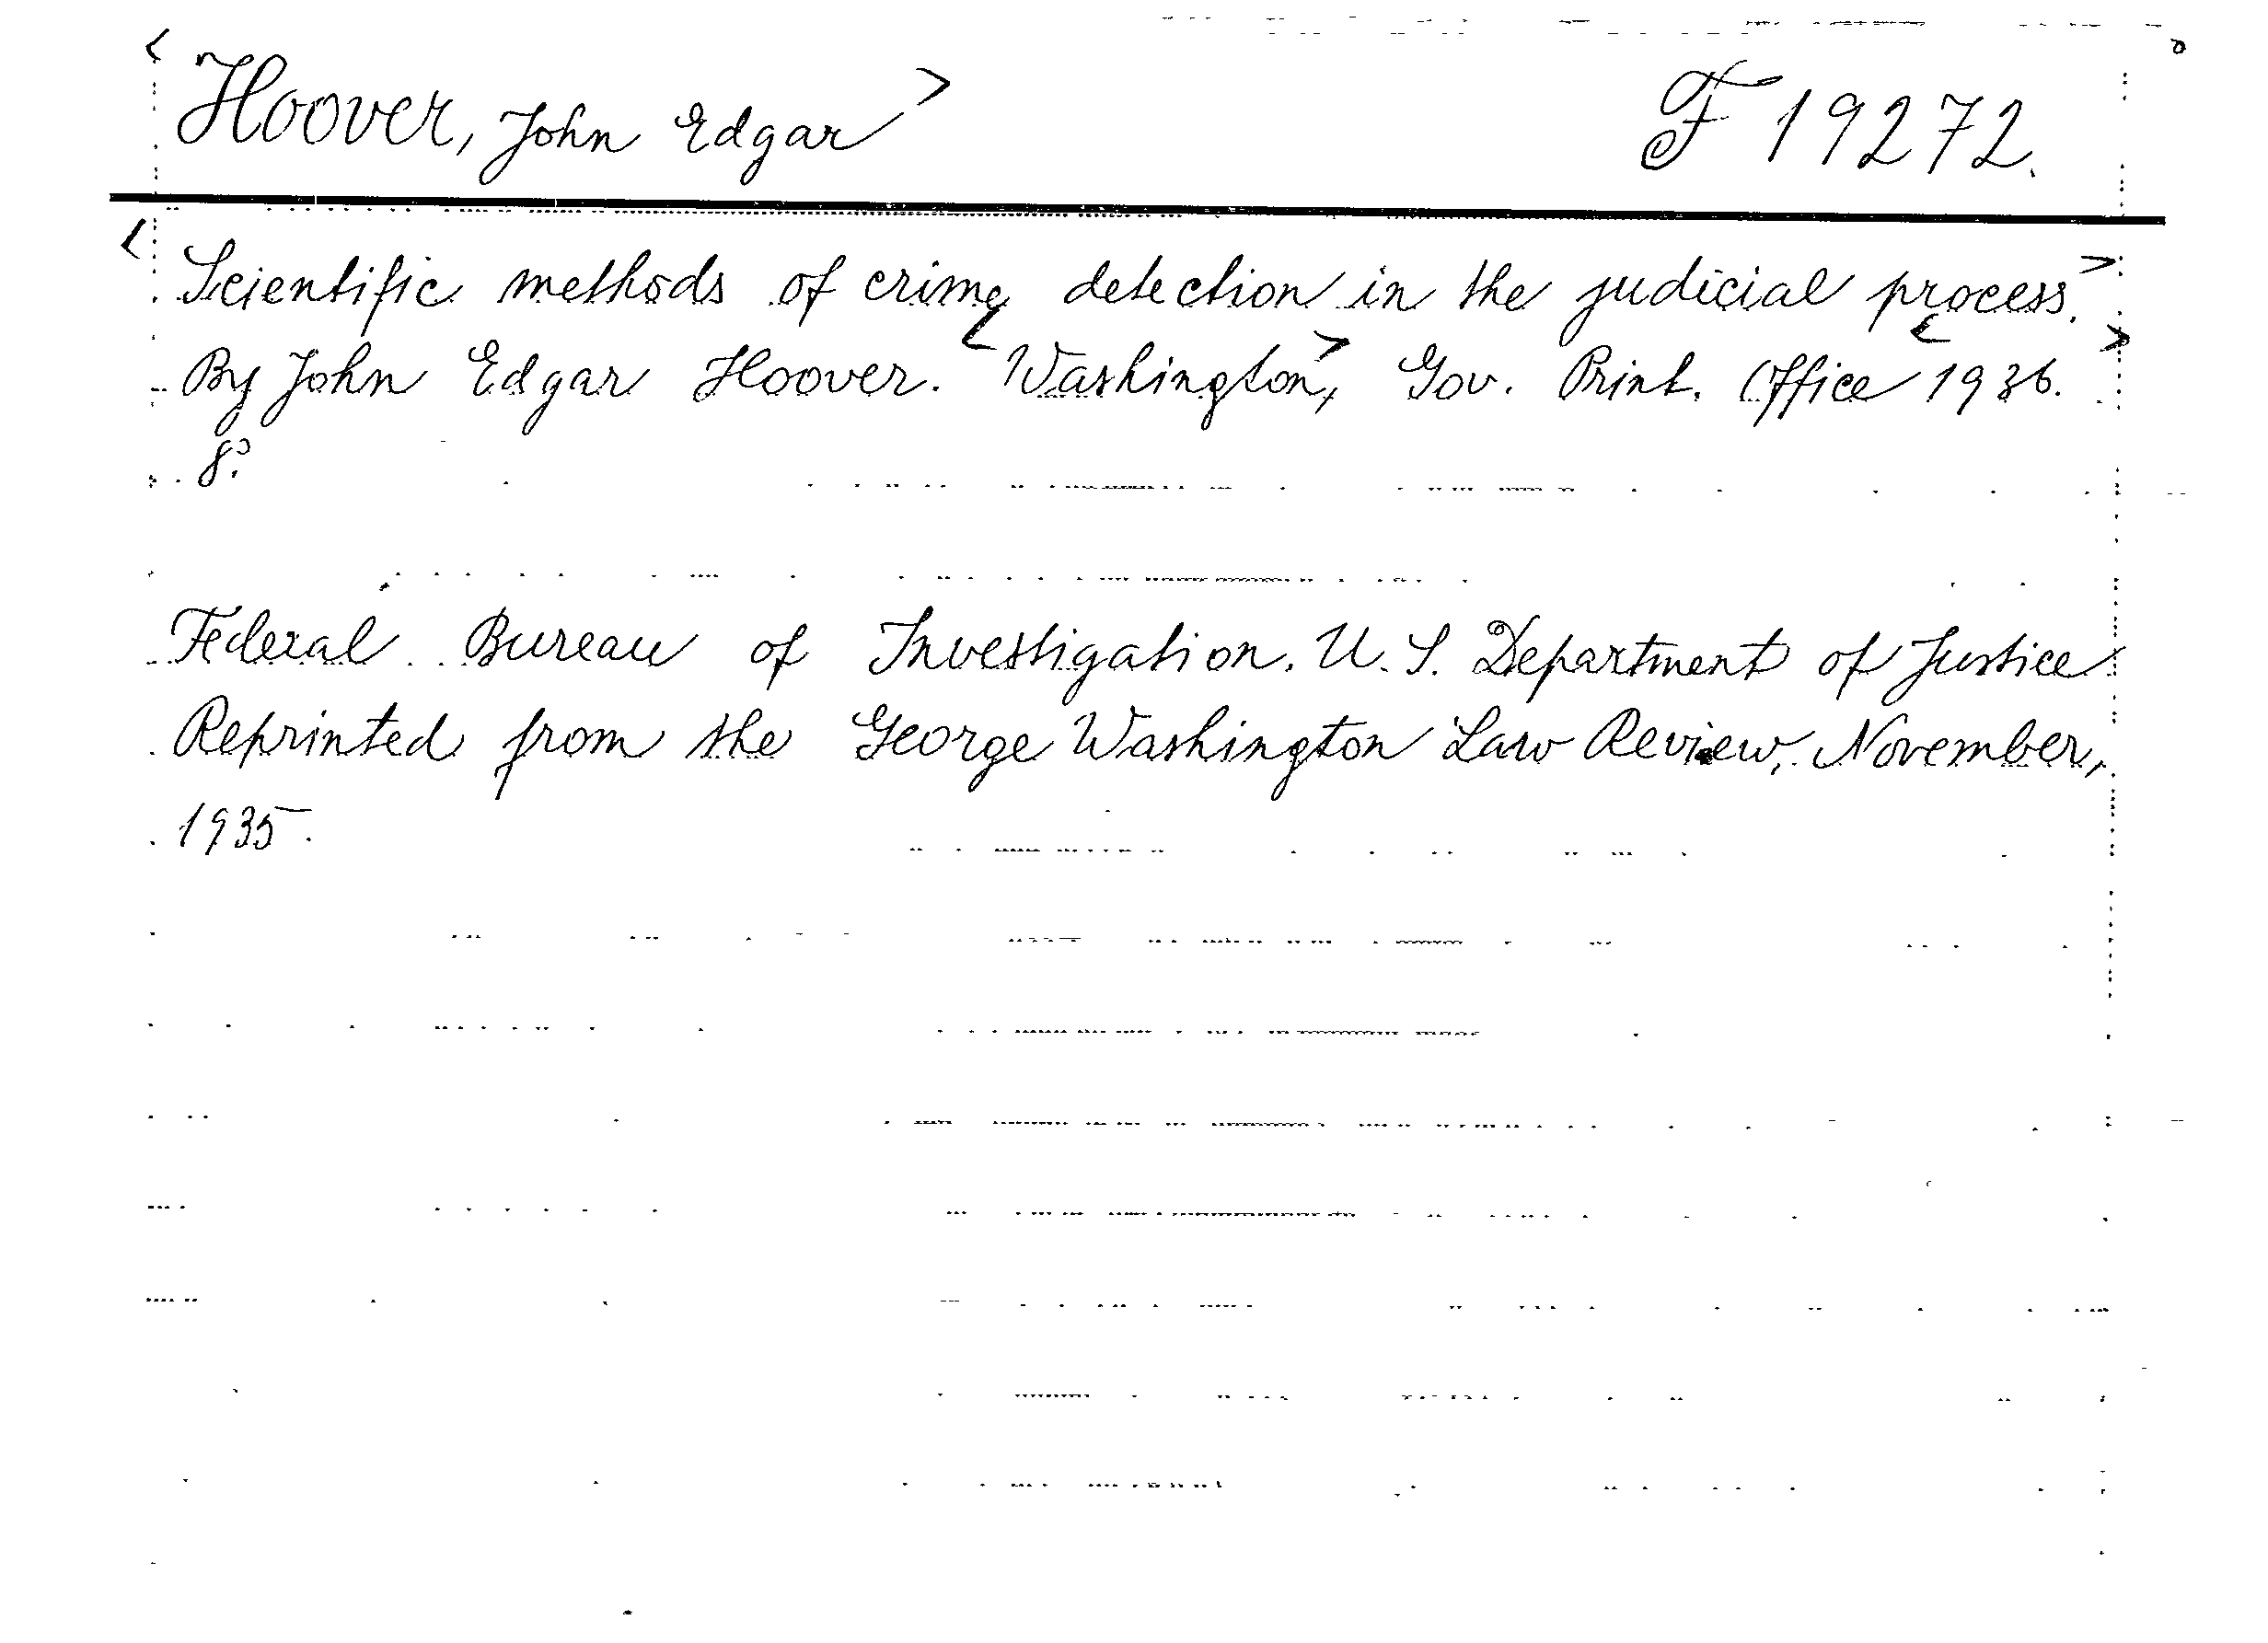 <Hoover, John Edgar> F 19272.
<Scientific methods of crime detection in the judicial process.>
By John Edgar Hoover. <Washington>, Gov. Print. Office <1936.>
8°.
Federal Bureau of Investigation. U. S. Department of Justice
Reprinted from the George Washington Law Review, November,
1935.